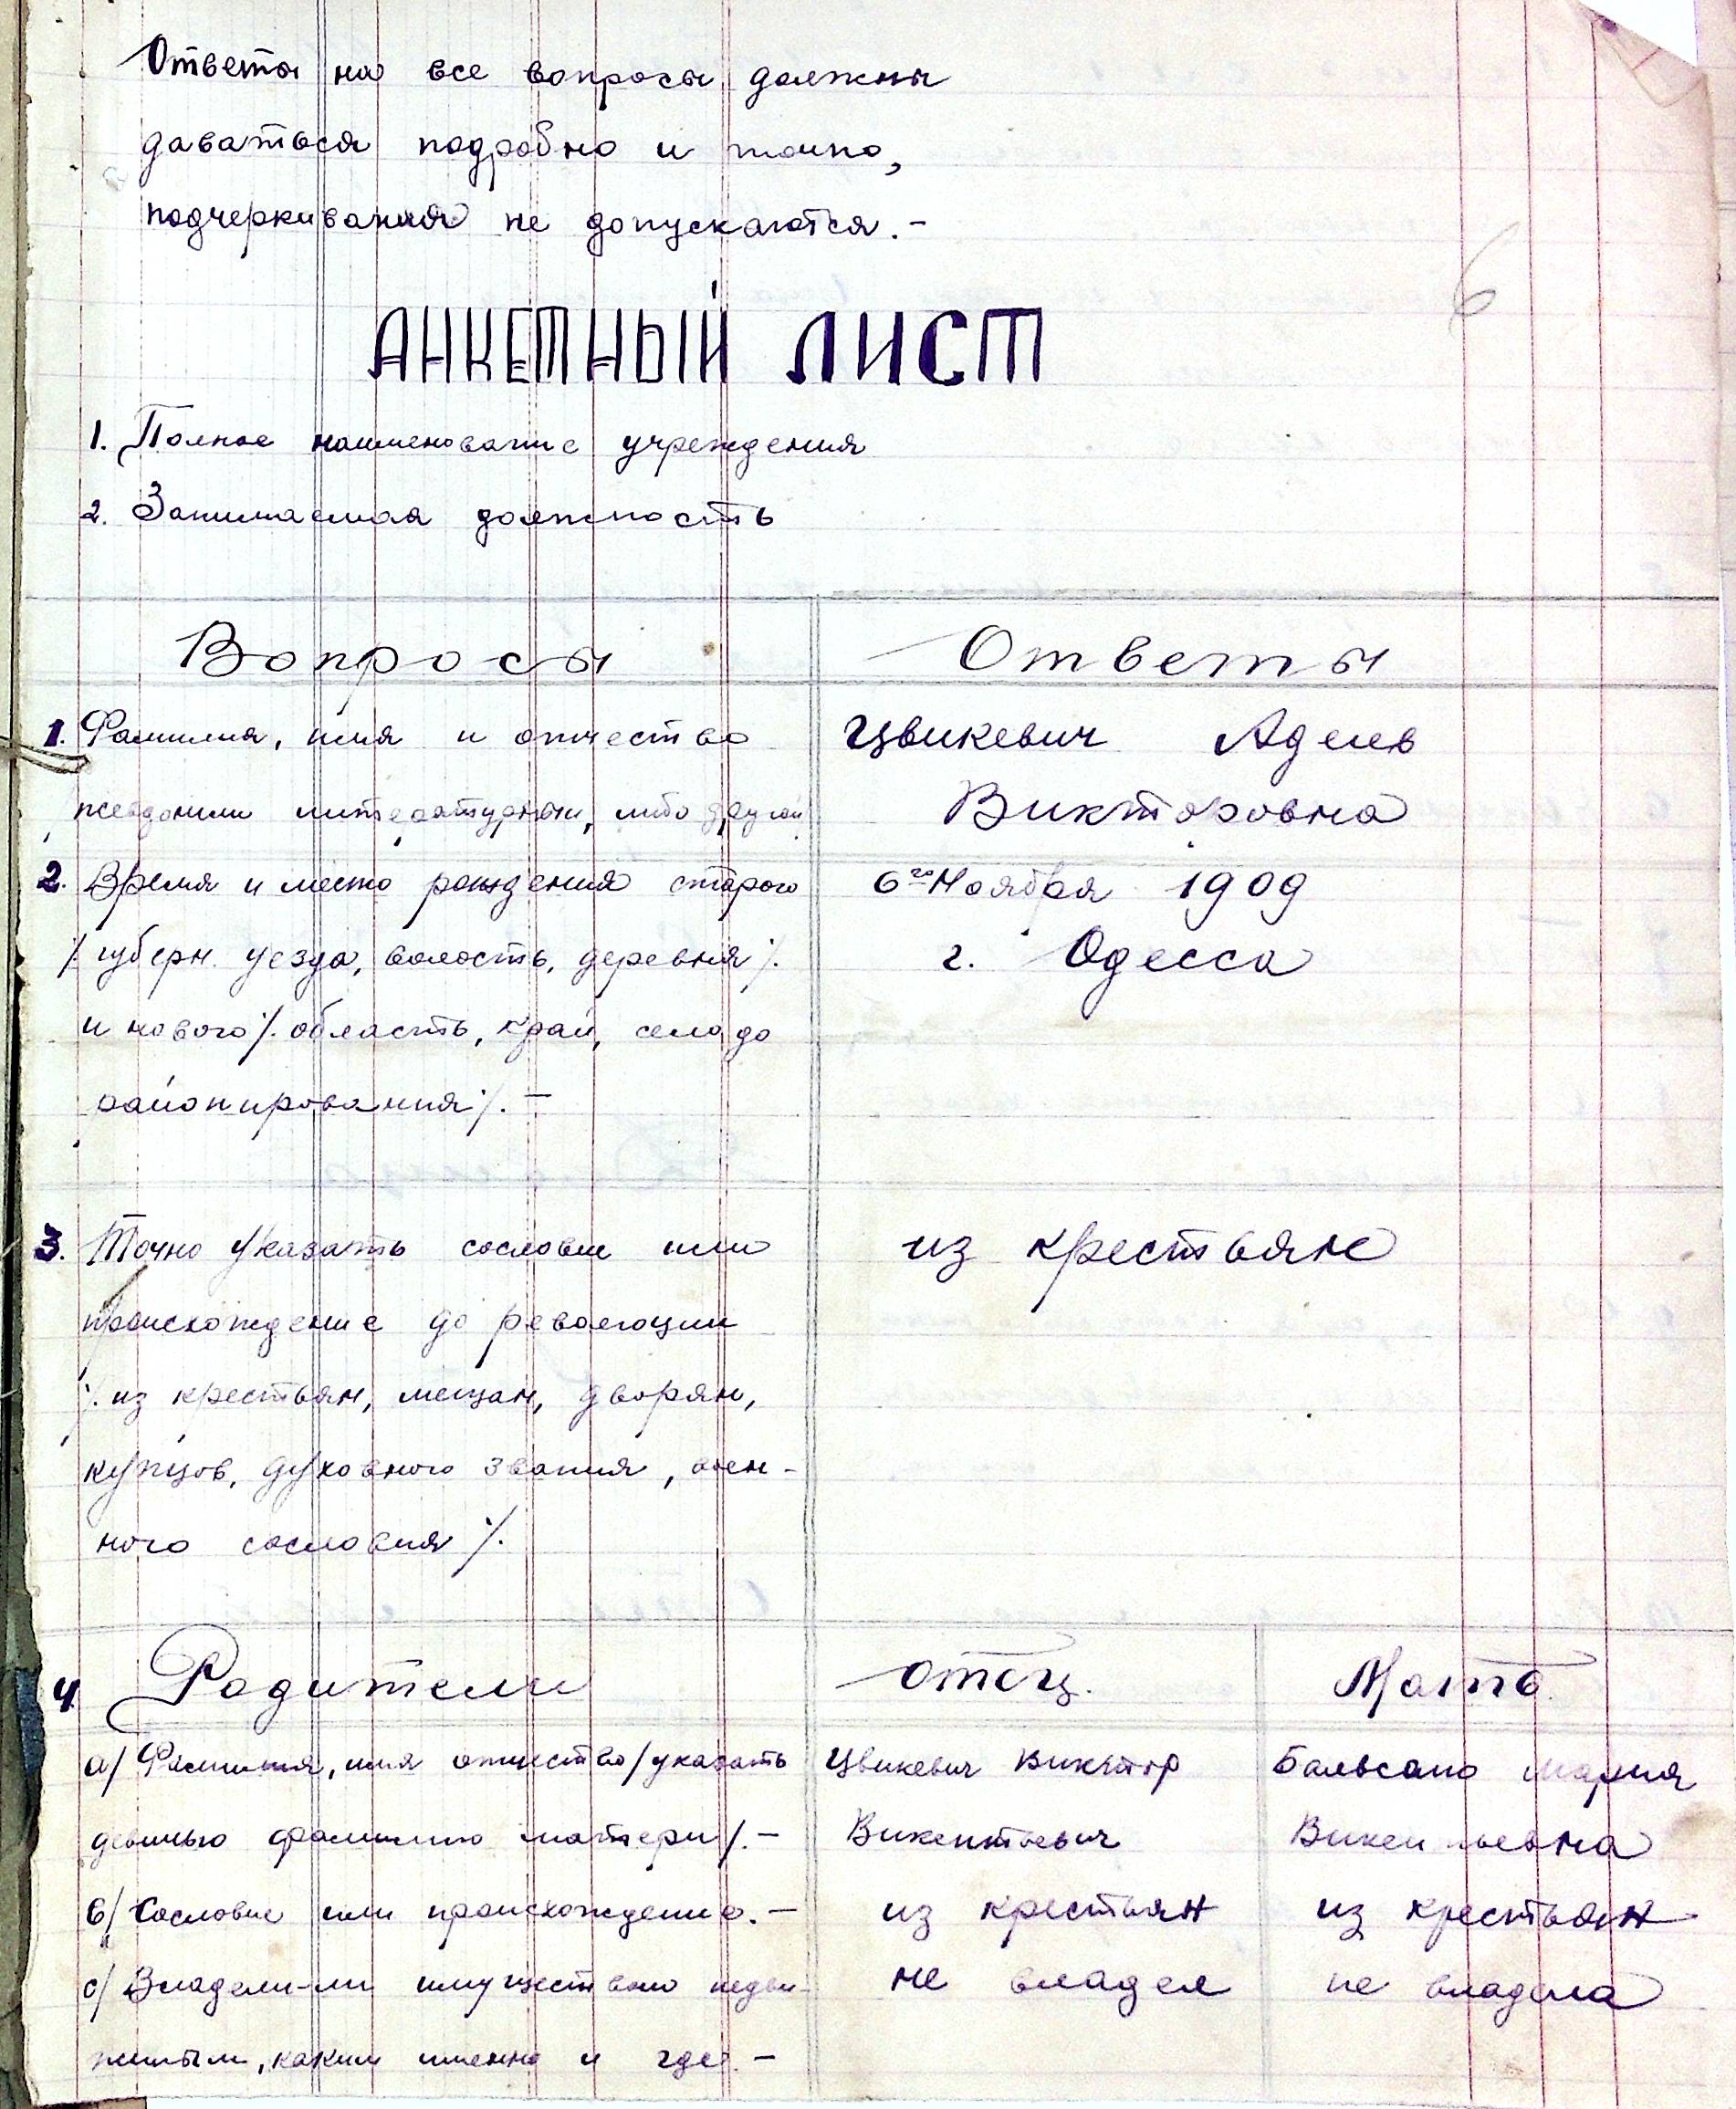 Ответы на все вопросы должны
даваться подробно и точно,
подчеркивания не допускаются. –
6
АНКЕТНЫЙ ЛИСТ
1. Полное наименование учреждения
2. Занимаемая должность
Вопросы Ответы
1. Фамилия, имя и отчество Цвикевич Адель
псевдоним литературный, либо другой Викторовна
2. Время и место рождения старого 6го Ноября 1909
/. губерн. уезда, волость, деревня /. г. Одесса
и нового /. область, край, село до
районирования /. –
3. Точно указать сословие или из крестьян
происхождение до революции
/. из крестьян, мещан, дворян,
купцов, духовного звания, воен-
ного сословия /.
4 Родители отец. Мать.
а/ Фамилия, имя отчество / указать Цвикевич Виктор Бальсано Мария
девичью фамилию матери /. – Викентьевич Викентьевна
в/ Сословие или происхождение. – из крестьян из крестьян
с/ Владели-ли имуществом недви- не владел не владела
жимым, каким именно и где. –